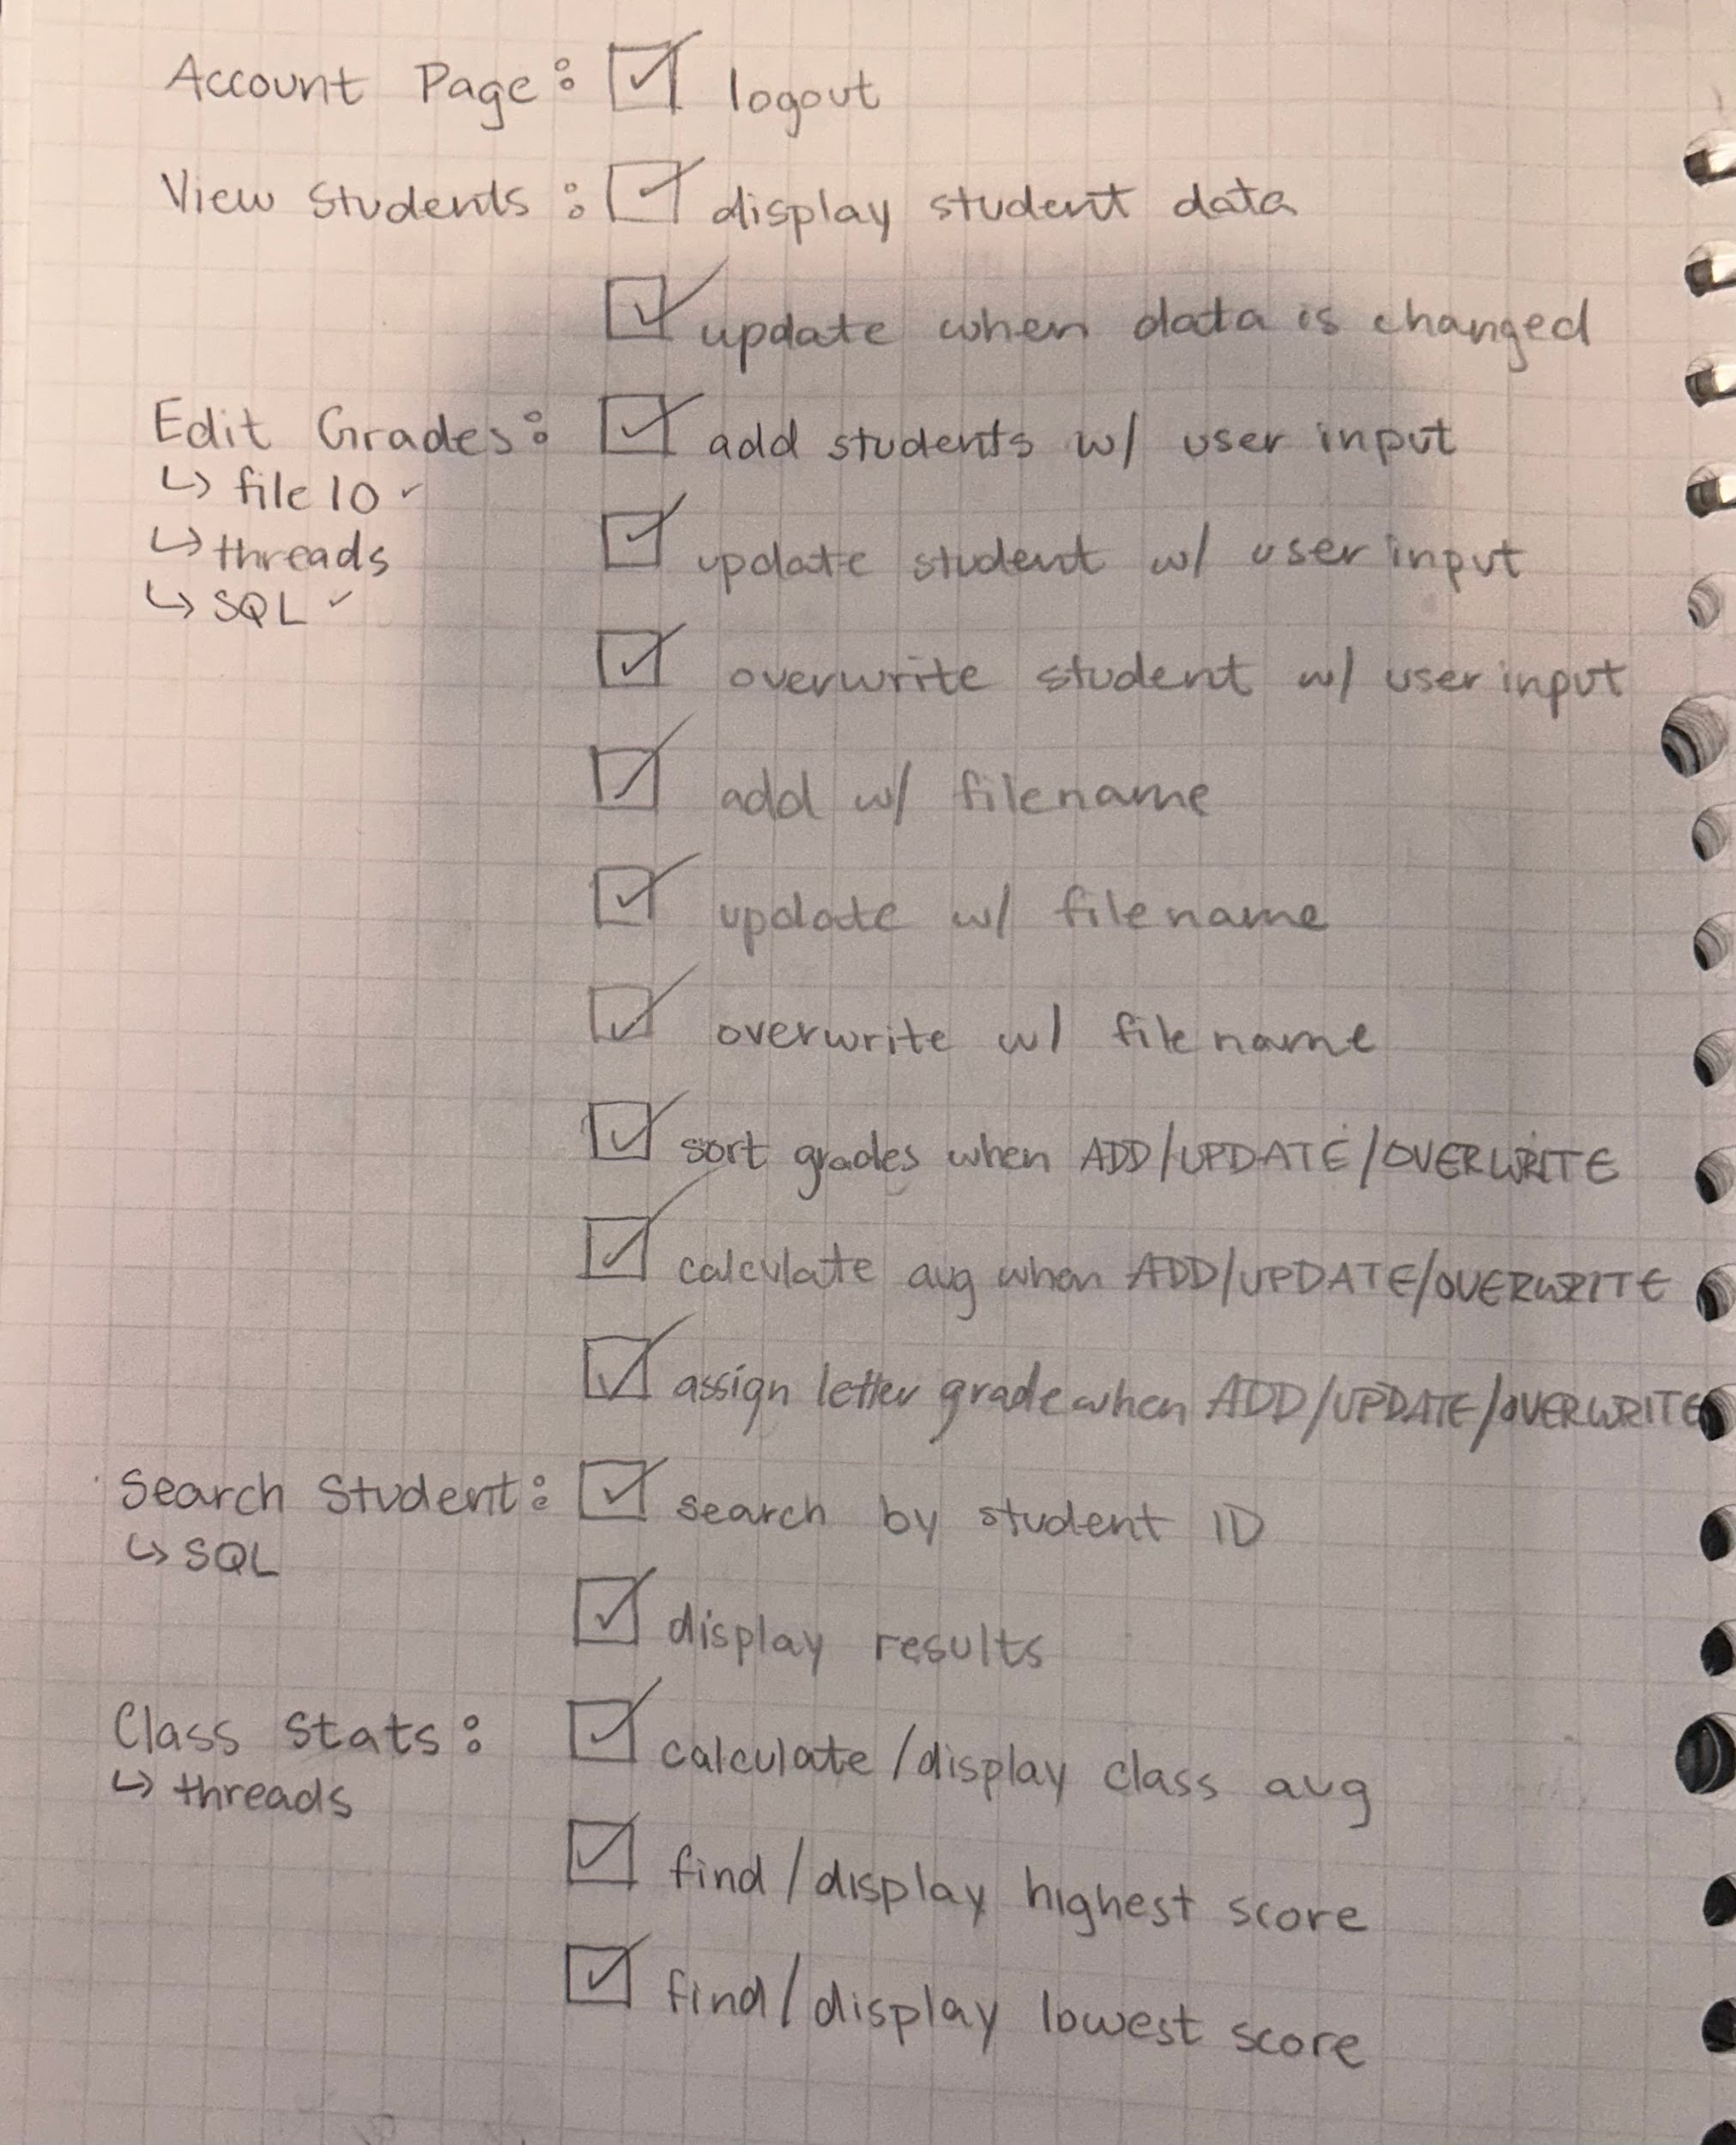 Account Page: ☑ logout
View Students: ☑ display student data
☑ update when data is changed
Edit Grades: ☑ add students w/ user input
↳ file IO ✓
↳ threads
☑ update student w/ user input
↳ SQL ✓
☑ overwrite student w/ user input
☑ add w/ filename
☑ update w/ filename
☑ overwrite w/ filename
☑ sort grades when ADD/UPDATE/OVERWRITE
☑ calculate avg when ADD/UPDATE/OVERWRITE
☑ assign letter grade when ADD/UPDATE/OVERWRITE
Search Student: ☑ search by student ID
↳ SQL
☑ display results
Class Stats: ☑ calculate/display class avg
↳ threads
☑ find/display highest score
☑ find/display lowest score